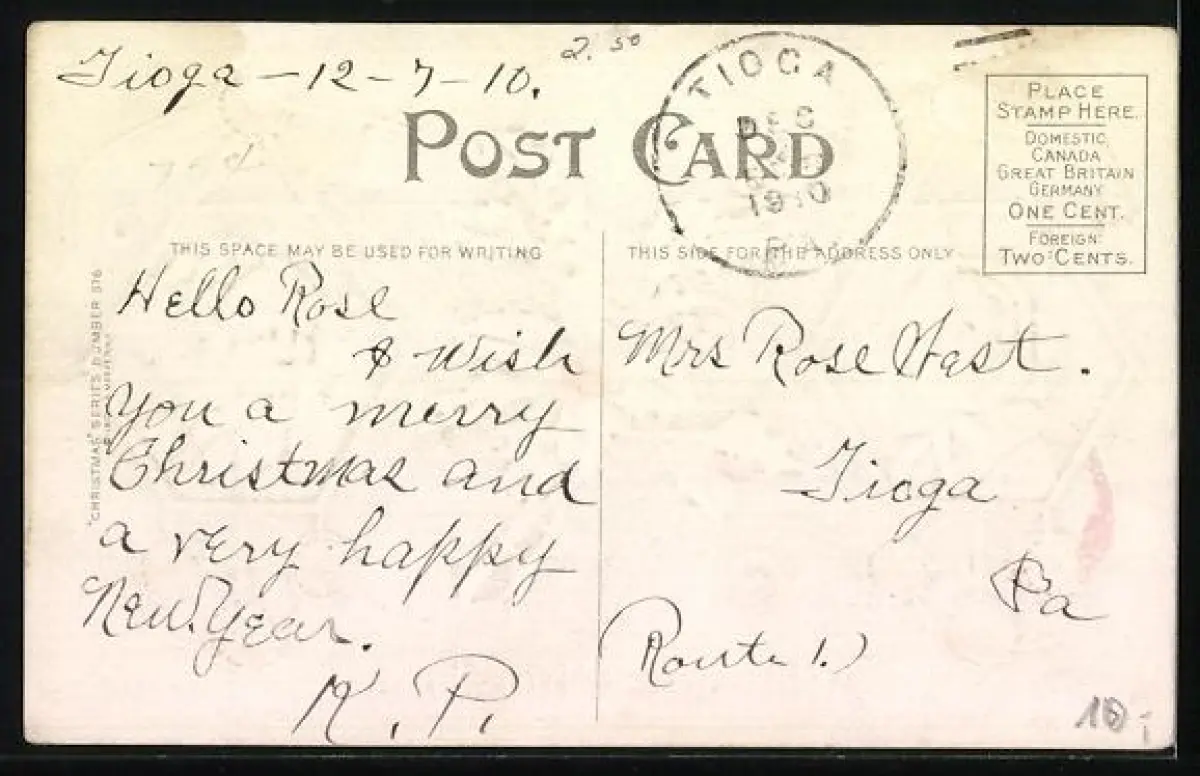 Tioga - 12 - 7 - 10.
2.50
TIOGA
DEC
1910
PA
POST CARD
PLACE
STAMP HERE.
DOMESTIC,
CANADA
GREAT BRITAIN
GERMANY
ONE CENT.
FOREIGN:
TWO CENTS.
THIS SPACE MAY BE USED FOR WRITING
THIS SIDE FOR THE ADDRESS ONLY
"CHRISTMAS" SERIES NUMBER 516
Hello Rose
& Wish
You a merry
Christmas and
a very happy
New Year.
K. P.
Mrs Rose West.
Tioga
Pa
Route 1.)
10.-